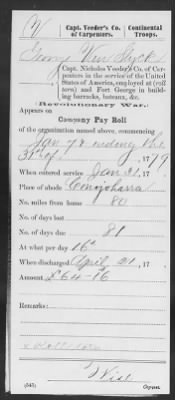 V
Capt. Veeder's Co. of Carpenters.
Continental Troops.
George Van Slyck
Capt. Nicholas Veeder's Co. of Carpenters in the service of the United States of America, employed at
and Fort George in building barracks, bateaux, &c.
(Revolutionary War.)
Appears on
Company Pay Roll
of the organization named above, commencing
Jan 7 & ending the
31st of , 1779
When entered service Jan 31, 17
Place of abode Conojoharra
No. miles from home 80
No. of days lost
No. of days due 81
At what per day 16s
When discharged April 21, 17
Amount £64-16
Remarks:
(545)
Copyist.